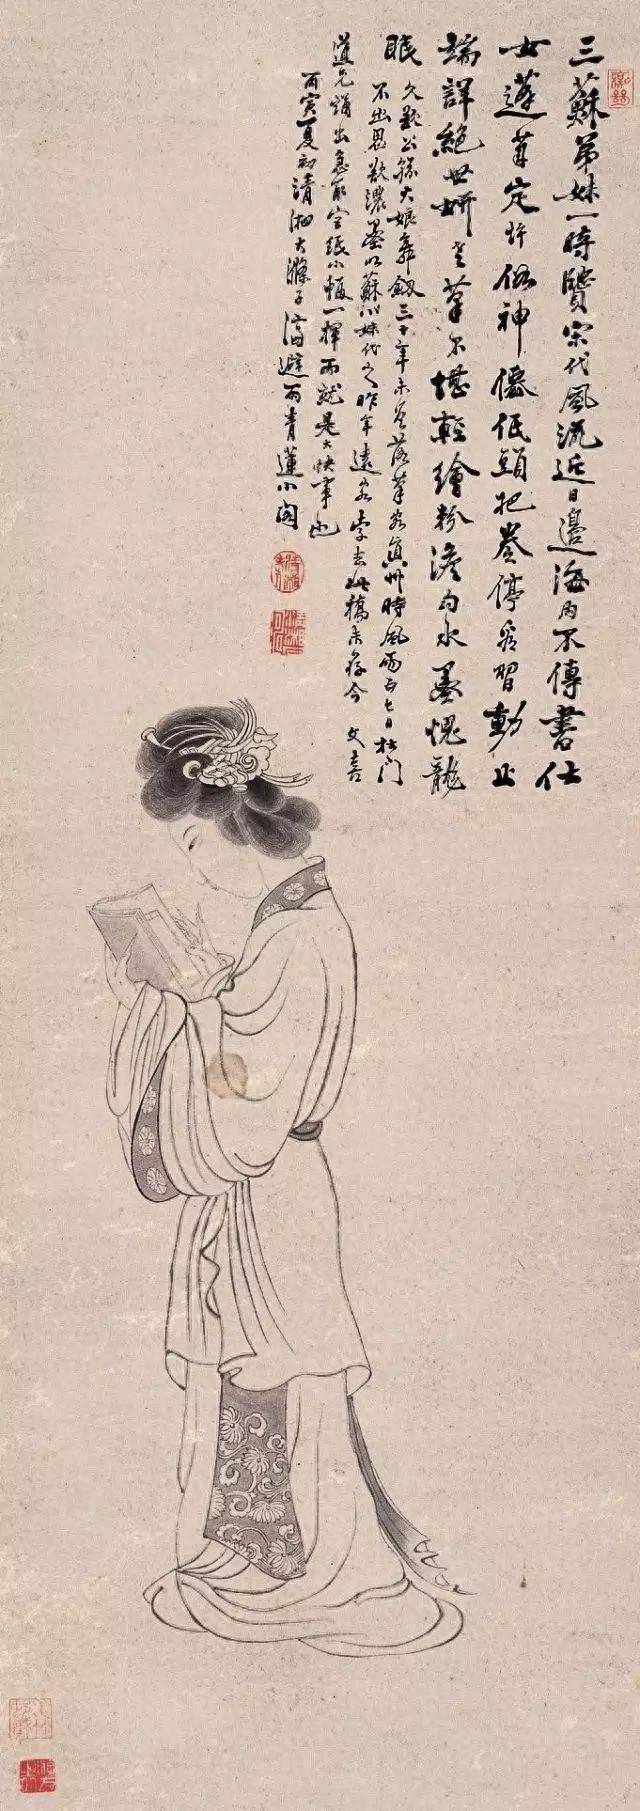 三蘇弟妹一時賢宋代風流近日邊海內不傳書仕
女蓬萊定許作神僊低頭把卷停看習動止
端詳絕世妍老筆不堪輕繪粉澹勾水墨愧龍
眠 久公孫大娘舞劔三十年未落筆客真州時風雨七日杜門
不出思欲濃墨以蘇小妹代之昨年遠客索去此稿未存今 文喜
道兄出意取空紙小幅一揮而就是大快事也
丙寅夏初清湘大滌子濟避雨青蓮小閣